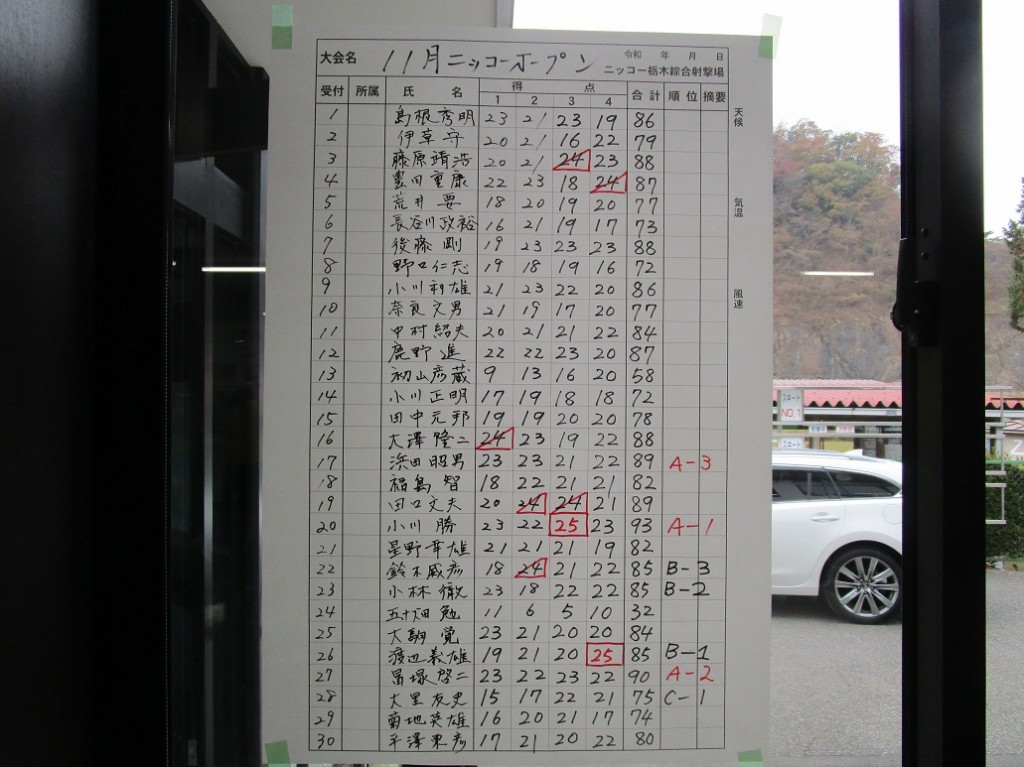 大会名 11月ニッコーオープン 令和 年 月 日
ニッコー栃木綜合射撃場
受付 所属 氏 名 得 点 合計 順位 摘要
1 2 3 4
1 島根秀明 23 21 23 19 86
2 伊草守 20 21 16 22 79
3 藤原靖浩 20 21 24 23 88
4 豊田重康 22 23 18 24 87
5 荒井要 18 20 19 20 77
6 長谷川政裕 16 21 19 17 73
7 後藤剛 19 23 23 23 88
8 野口仁志 19 18 19 16 72
9 小川利雄 21 23 22 20 86
10 奈良文男 21 19 17 20 77
11 中村紹夫 20 21 21 22 84
12 鹿野進 22 22 23 20 87
13 初山彦蔵 9 13 16 20 58
14 小川正明 17 19 18 18 72
15 田中元邦 19 19 20 20 78
16 大澤隆二 24 23 19 22 88
17 浜田昭男 23 23 21 22 89 A-3
18 福島智 18 22 21 21 82
19 田口文夫 20 24 24 21 89
20 小川勝 23 22 25 23 93 A-1
21 星野幸雄 21 21 21 19 82
22 鈴木威彦 18 24 21 22 85 B-3
23 小林徹 23 18 22 22 85 B-2
24 五十畑勉 11 6 5 10 32
25 大駒覚 23 21 20 20 84
26 渡辺義雄 19 21 20 25 85 B-1
27 塚啓二 23 22 23 22 90 A-2
28 大里友史 15 17 22 21 75 C-1
29 菊地英雄 16 20 21 17 74
30 平澤東彦 17 21 20 22 80
天候
気温
風速
NO.1